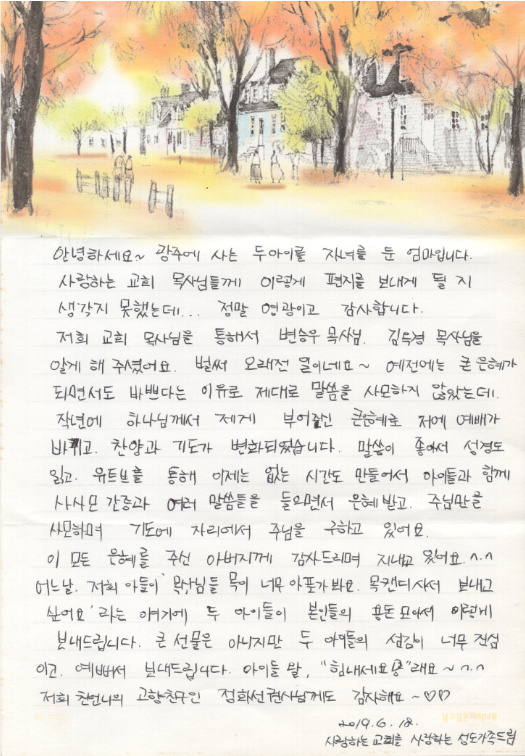 안녕하세요~ 광주에 사는 두아이를 자녀를 둔 엄마입니다.
사랑하는 교회 목사님들께 이렇게 편지를 보내게 될 지
생각지 못했는데... 정말 영광이고 감사합니다.
저희 교회 목사님을 통해서 변승우 목사님, 김옥경 목사님을
알게 해 주셨어요. 벌써 오래전 일이네요~ 예전에는 큰 은혜가
되면서도 바쁘다는 이유로 제대로 말씀을 사모하지 않았는데.
작년에 하나님께서 제게 부어주신 큰은혜로 저에 예배가
바뀌고. 찬양과 기도가 변화되었습니다. 말씀이 좋아서 성경도
읽고. 유트브를 통해 이제는 없는 시간도 만들어서 아이들과 함께
사사모 간증과 여러 말씀들을 들으면서 은혜받고. 주님만을
사모하며 기도에 자리에서 주님을 구하고 있어요.
이 모든 은혜를 주신 아버지께 감사드리며 지내고 있어요.^.^
어느날. 저희 아들이 '목사님들 목이 너무 아프가 봐요. 목캔디사서 보내고
싶어요' 라는 얘기에 두 아이들이 본인들의 용돈 모아서 이렇게
보내드립니다. 큰 선물은 아니지만 두 아이들의 섬김이 너무 진심
이고. 예뻐서 보내드립니다. 아이들 말, "힘내세요" 래요~^.^
저희 친언니의 고향친구인 정희선권사님께도 감사해요~♡♡
2019.6.18.
사랑하는 교회를 사랑하는 성도가족드림